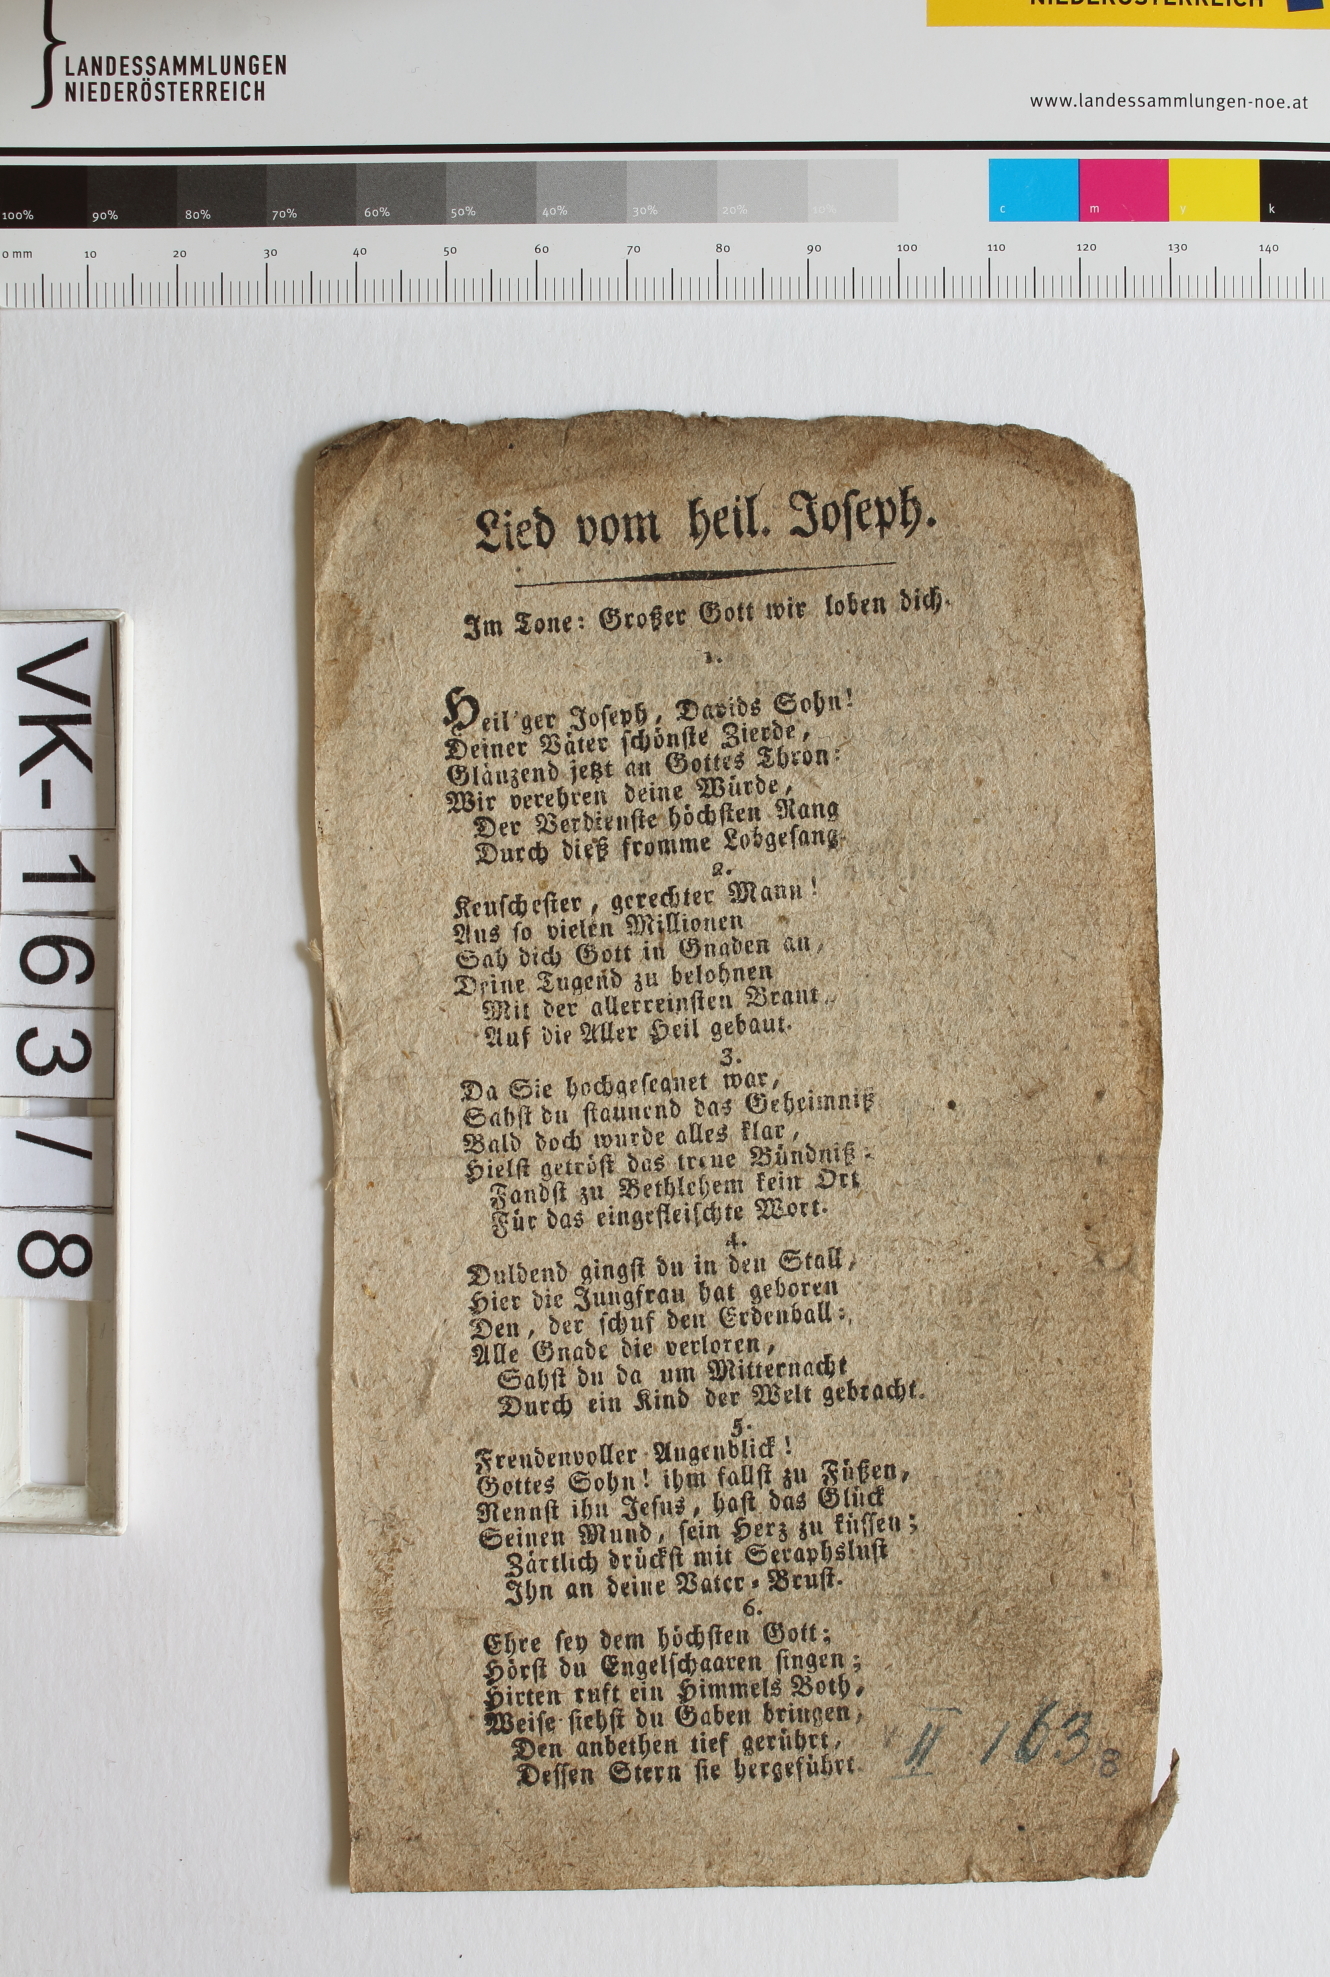 NIEDERÖSTERREICH
LANDESSAMMLUNGEN
NIEDERÖSTERREICH
www.landessammlungen-noe.at
100% 90% 80% 70% 60% 50% 40% 30% 20% 10% c m y k
0 mm 10 20 30 40 50 60 70 80 90 100 110 120 130 140
VK-163/8
Lied vom heil. Joseph.
Im Tone: Großer Gott wir loben dich.
1.
Heil'ger Joseph, Davids Sohn!
Deiner Väter schönste Zierde,
Glänzend jetzt an Gottes Thron:
Wir verehren deine Würde,
Der Verdienste höchsten Rang
Durch dieß fromme Lobgesang.
2.
Keuschester, gerechter Mann!
Aus so vielen Millionen
Sah dich Gott in Gnaden an,
Deine Tugend zu belohnen
Mit der allerreinsten Braut,
Auf die Aller Heil gebaut.
3.
Da Sie hochgesegnet war,
Sahst du staunend das Geheimniß
Bald doch wurde alles klar,
Hielst getröst das treue Bündniß:
Fandst zu Bethlehem kein Ort
Für das eingefleischte Wort.
4.
Duldend gingst du in den Stall,
Hier die Jungfrau hat geboren
Den, der schuf den Erdenball:
Alle Gnade die verloren,
Sahst du da um Mitternacht
Durch ein Kind der Welt gebracht.
5.
Freudenvoller Augenblick!
Gottes Sohn! ihm fallst zu Füßen,
Nennst ihn Jesus, hast das Glück
Seinen Mund, sein Herz zu küssen;
Zärtlich drückst mit Seraphslust
Ihn an deine Vater-Brust.
6.
Ehre sey dem höchsten Gott;
Hörst du Engelschaaren singen;
Hirten ruft ein Himmels Both,
Weise siehst du Gaben bringen,
Den anbethen tief gerührt,
Dessen Stern sie hergeführt.
II 163 8